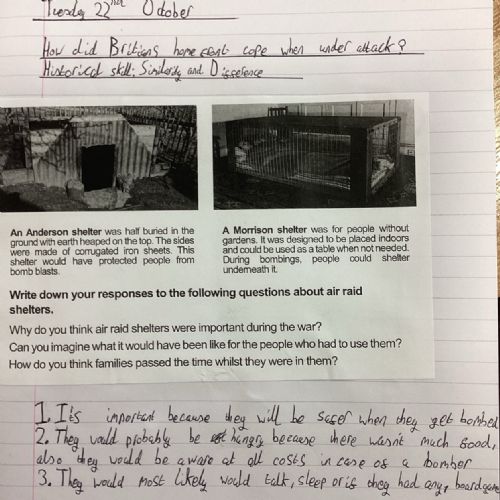 Tuesday 22nd October
How did Britians home front cope when under attack?
Historical skill: Similarity and Difference
An Anderson shelter was half buried in the
ground with earth heaped on the top. The sides
were made of corrugated iron sheets. This
shelter would have protected people from
bomb blasts.
A Morrison shelter was for people without
gardens. It was designed to be placed indoors
and could be used as a table when not needed.
During bombings, people could shelter
underneath it.
Write down your responses to the following questions about air raid
shelters.
Why do you think air raid shelters were important during the war?
Can you imagine what it would have been like for the people who had to use them?
How do you think families passed the time whilst they were in them?
1. It's important because they will be safer when they get bombed
2. They would probably be hangry because there wasn't much food,
also they would be aware at all costs in case of a bomber
3. They would most likely would talk, sleep or if they had any, boardgame